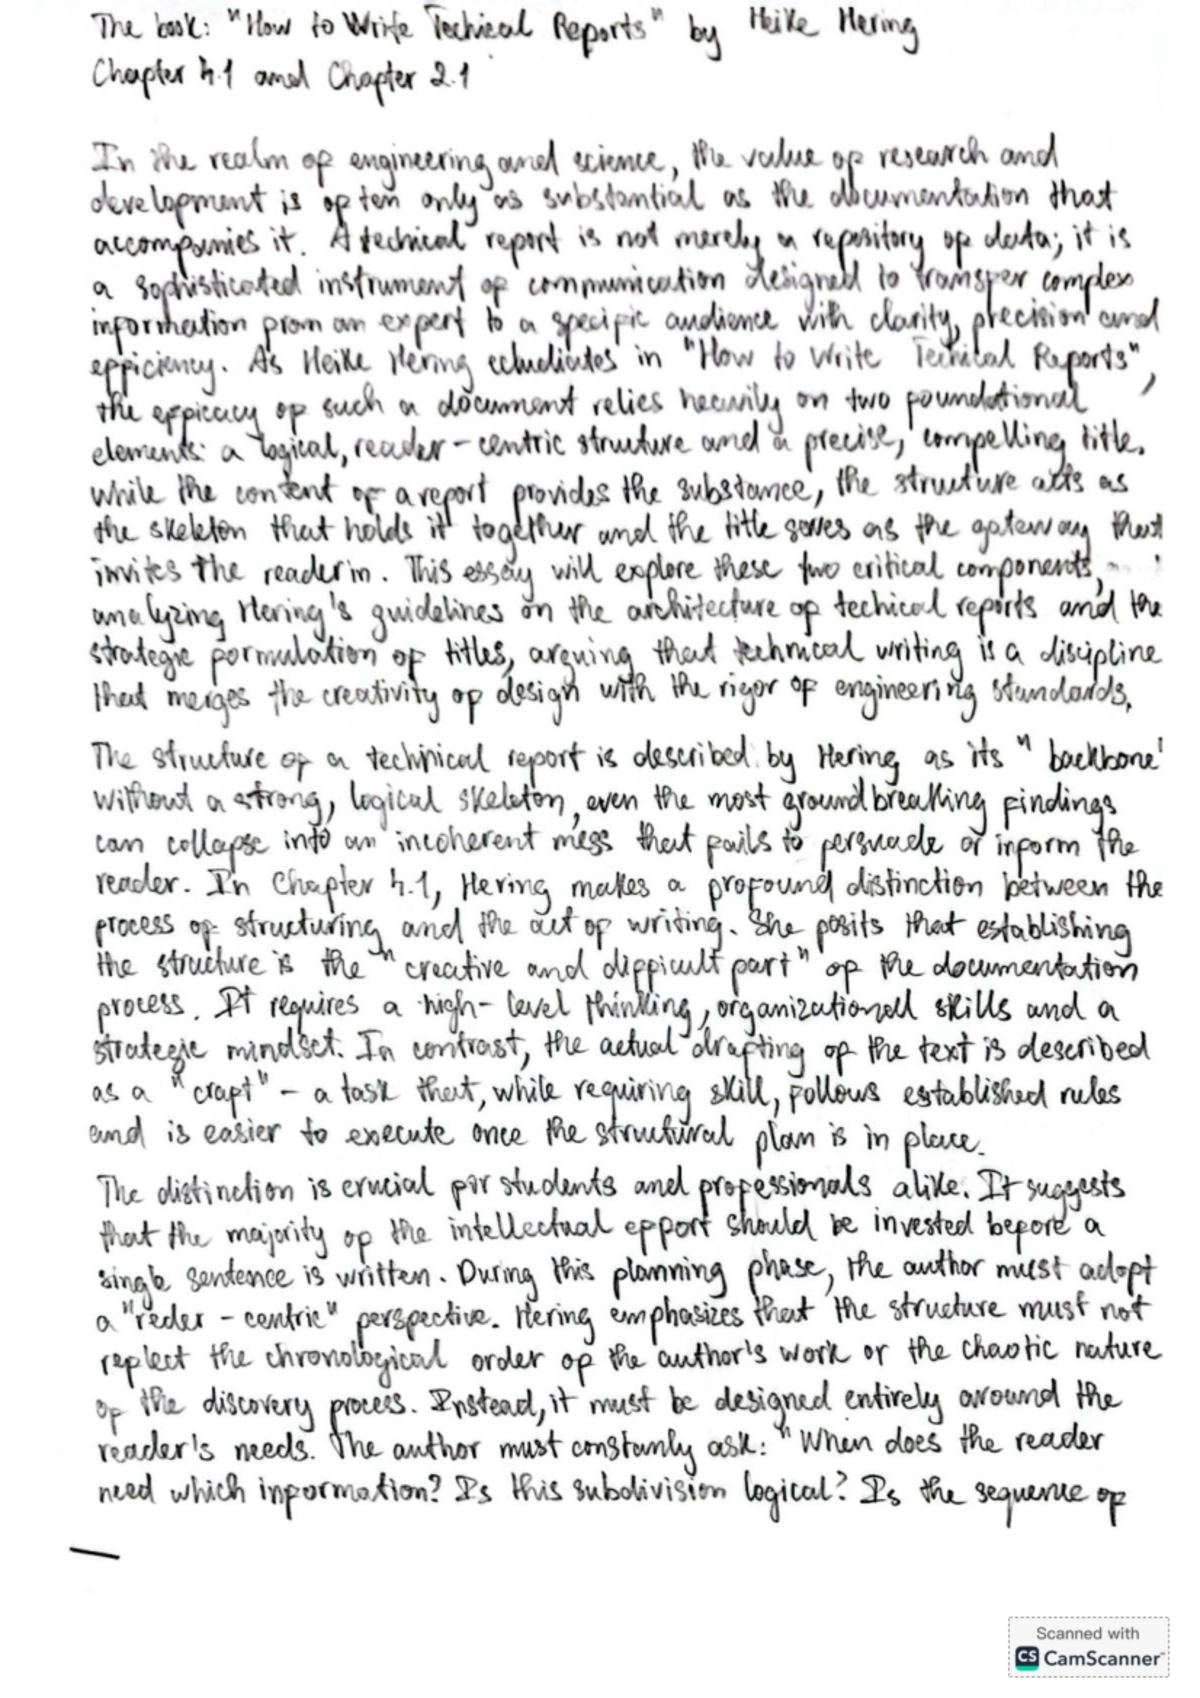 The book: "How to Write Techical Reports" by Heike Hering
Chapter 4.1 and Chapter 2.1
In the realm of engineering and science, the value of research and
development is often only as substantial as the documentation that
accompanies it. A techical report is not merely a repository of data; it is
a sophisticated instrument of communication designed to transfer complex
information from an expert to a specific audience with clarity, precision and
efficiency. As Heike Hering in "How to Write Techical Reports",
the efficacy of such a document relies heavily on two foundational
elements: a logical, reader-centric structure and a precise, compelling title.
While the content of a report provides the substance, the structure acts as
the skeleton that holds it together and the title serves as the gateway that
invites the reader in. This essay will explore these two critical components,
analyzing Hering's guidelines on the architecture of techical reports and the
strategic formulation of titles, arguing that technical writing is a discipline
that merges the creativity of design with the rigor of engineering standards.
The structure of a technical report is described by Hering as its "backbone"
Without a strong, logical skeleton, even the most groundbreaking findings
can collapse into an incoherent mess that fails to persuade or inform the
reader. In Chapter 4.1, Hering makes a profound distinction between the
process of structuring and the act of writing. She posits that establishing
the structure is the "creative and difficult part" of the documentation
process. It requires a high-level thinking, organizationall skills and a
strategic mindset. In contrast, the actual drafting of the text is described
as a "craft" - a task that, while requiring skill, follows established rules
and is easier to execute once the structural plan is in place.
The distinction is crucial for students and professionals alike. It suggests
that the majority of the intellectual effort should be invested before a
single sentence is written. During this planning phase, the author must adopt
a "reder-centric" perspective. Hering emphasizes that the structure must not
reflect the chronological order of the author's work or the chaotic nature
of the discovery process. Instead, it must be designed entirely around the
reader's needs. The author must constanly ask: "When does the reader
need which information? Is this subdivision logical? Is the sequence of
Scanned with
CS CamScanner